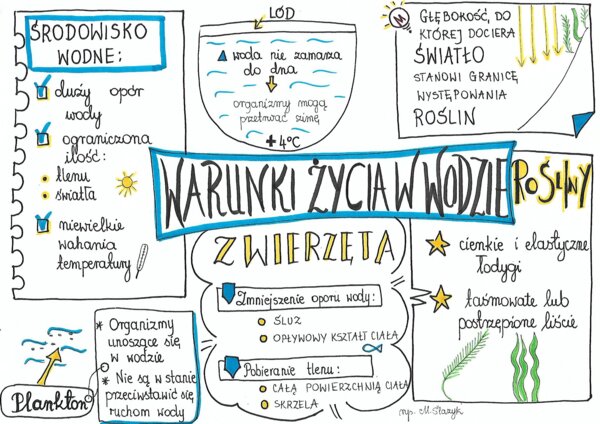 ŚRODOWISKO
WODNE:
duży opór
wody
ograniczona
ilość:
tlenu
światła
niewielkie
wahania
temperatury
LÓD
woda nie zamarza
do dna
organizmy mogą
przetrwać zimę
+4°C
M
GŁĘBOKOŚĆ, DO
KTÓREJ DOCIERA
ŚWIATŁO
STANOWI GRANICĘ
WYSTĘPOWANIA
ROŚLIN
WARUNKI ŻYCIA W WODZIE
ZWIERZĘTA
Zmniejszenie oporu wody:
ŚLUZ
OPŁYWOWY KSZTAŁT CIAŁA
Pobieranie tlenu:
CAŁĄ POWIERZCHNIĄ CIAŁA
SKRZELA
ROŚLINY
cienkie i elastyczne
łodygi
taśmowate lub
postrzępione liście
Plankton
* Organizmy
unoszące się
w wodzie
* Nie są w stanie
przeciwstawić się
ruchom wody